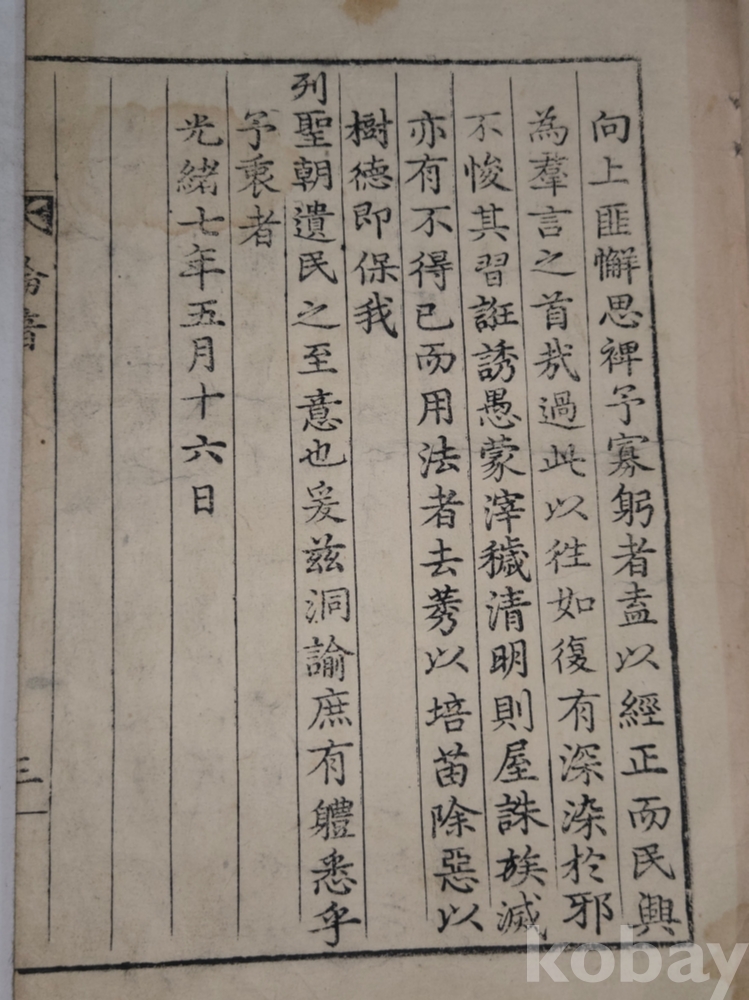 向上匪懈思裨予寡躬者盍以經正而民興
為羣言之首哉過此以徃如復有深染於邪
不悛其習誑誘愚蒙滓穢清明則屋誅族滅
亦有不得已而用法者去莠以培苗除惡以
樹德即保我
列聖朝遺民之至意也爰玆洞諭庶有軆悉乎
予衷者
光緒七年五月十六日
綸音
三
kobay